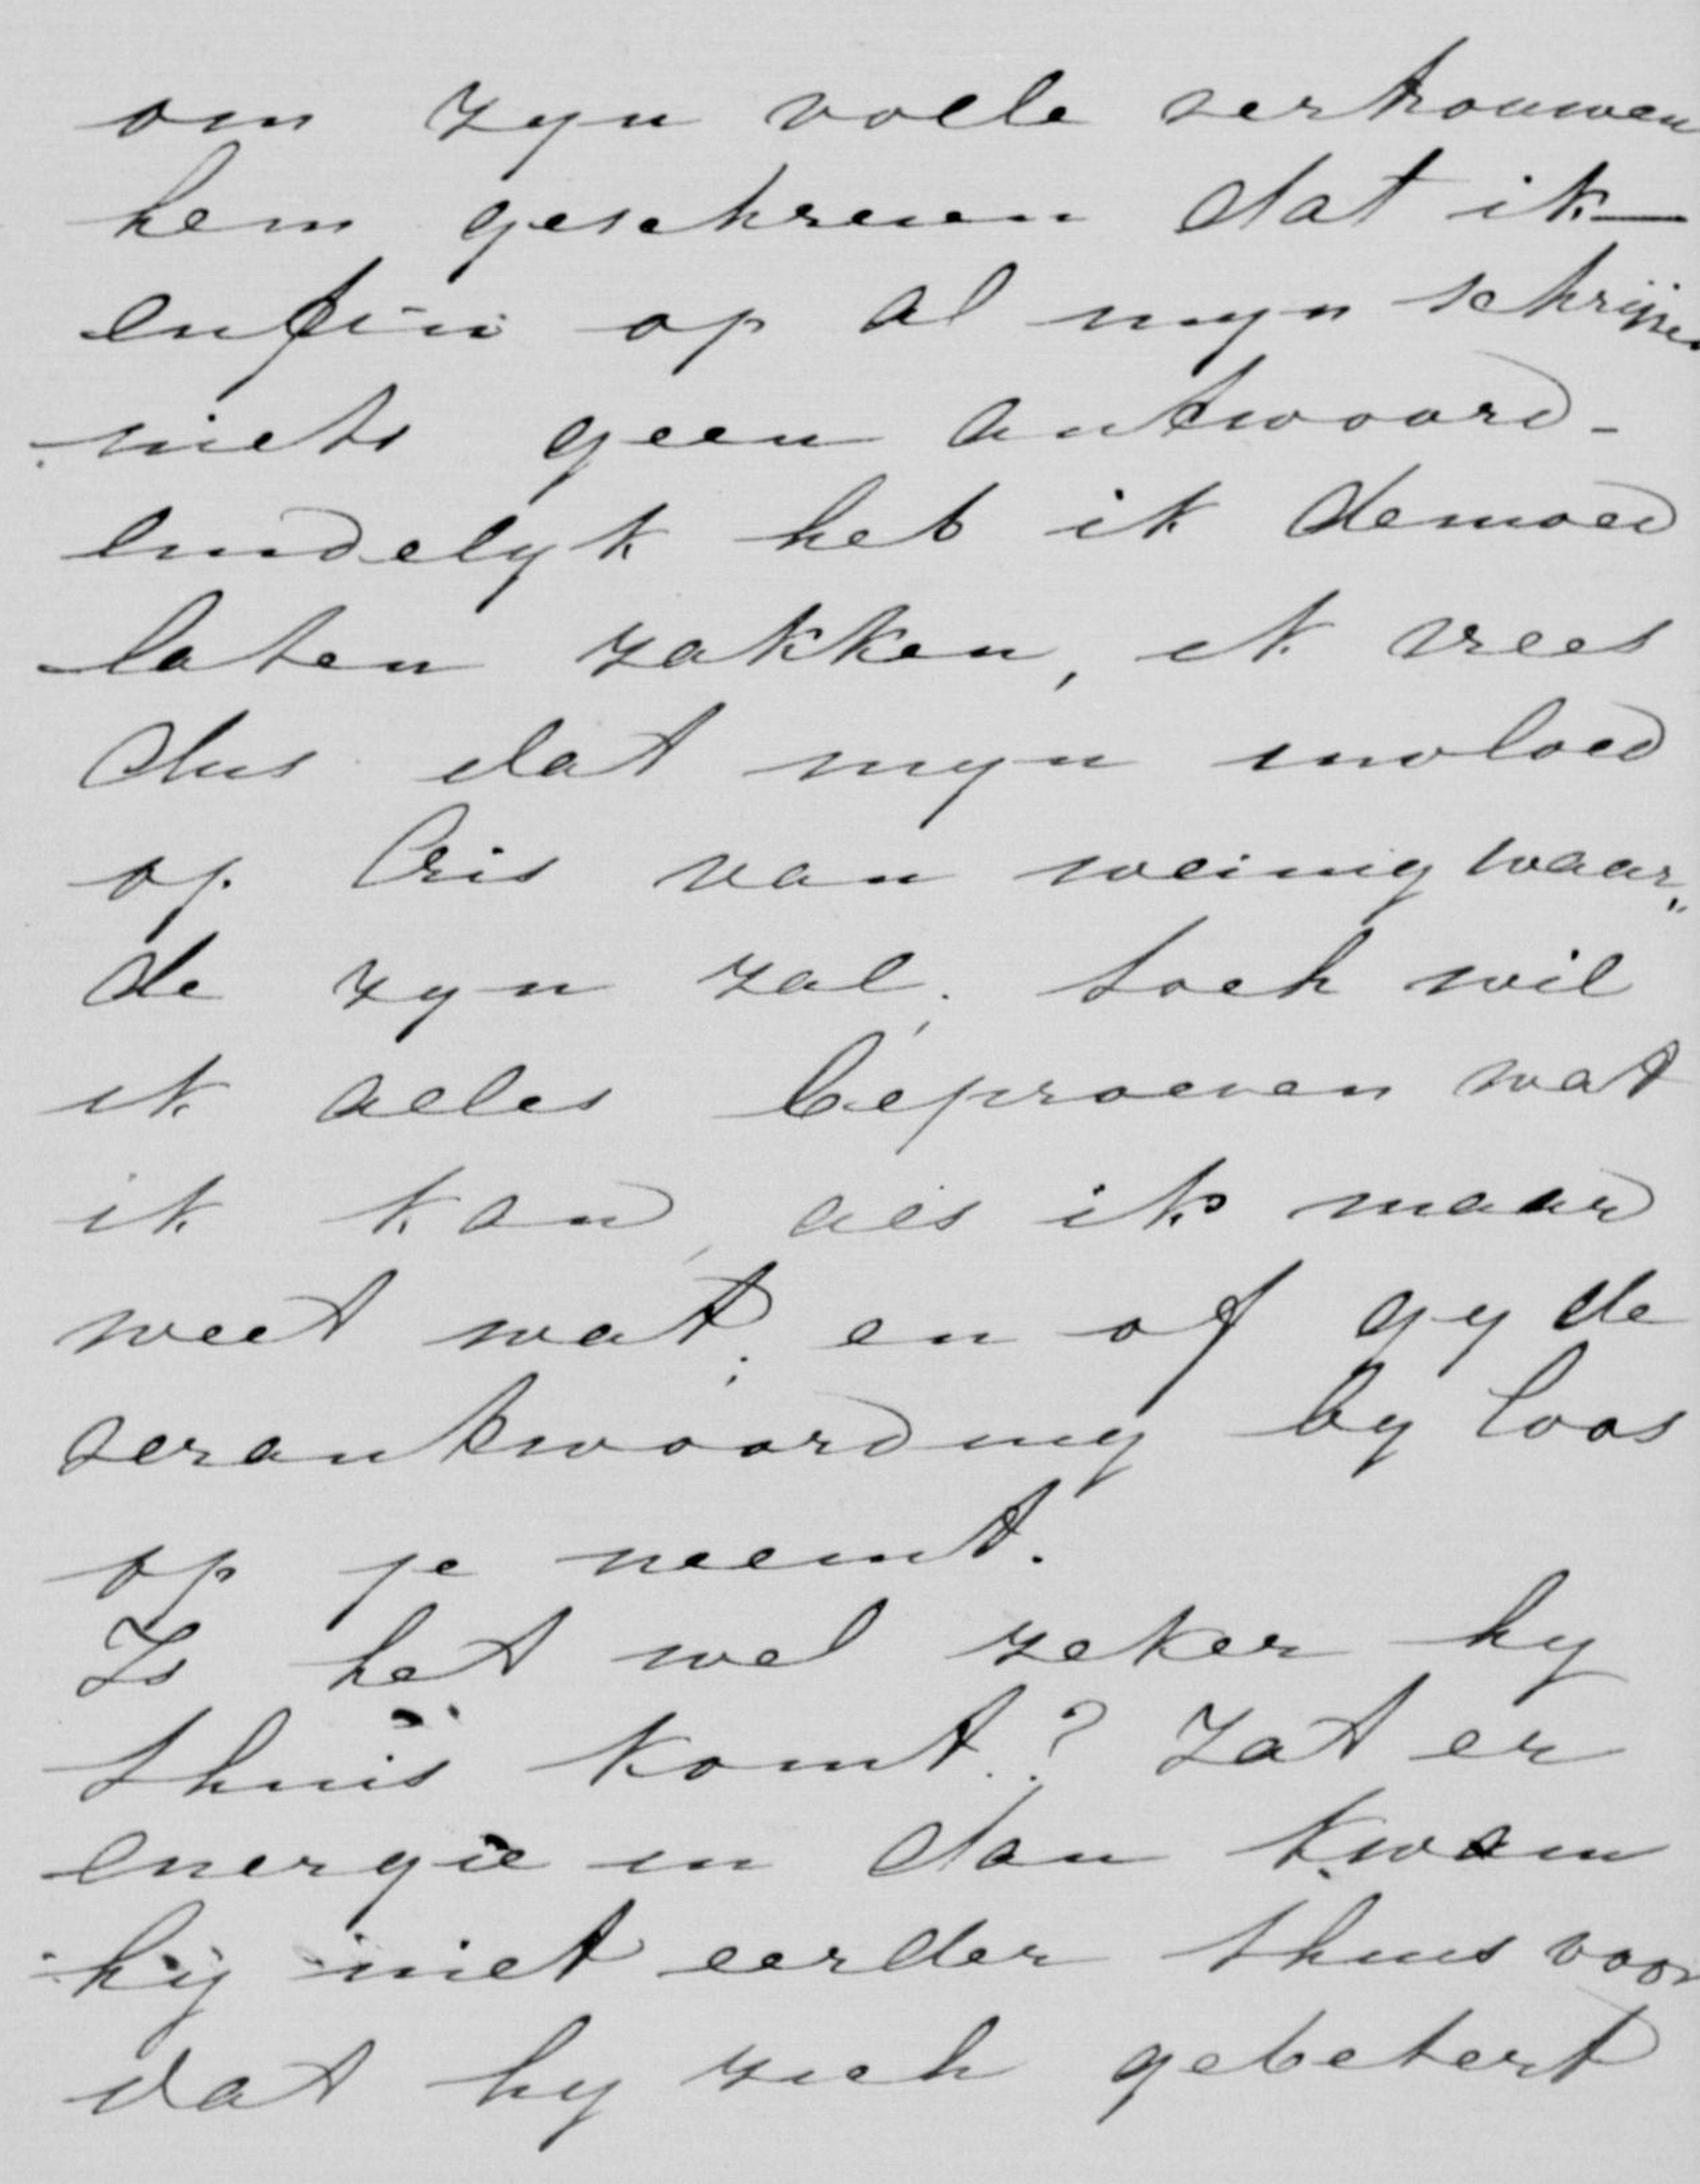 om zyn volle vertrouwen
hem geschreven dat ik —
enfin op al myn schrijven
niets geen antwoord -
eindelyk heb ik de moed
laten zakken, ik vrees
dus dat myn invloed
op Cris van weinig waar„
de zyn zal; toch wil
ik alles beproeven wat
ik kan, als ik maar
weet wat; en of gy de
verantwoording by Coos
op je neemt.
Is het wel zeker hy
thuis komt? Zat er
energie in dan kwam
hij niet eerder thuis voor
dat hy zich gebetert